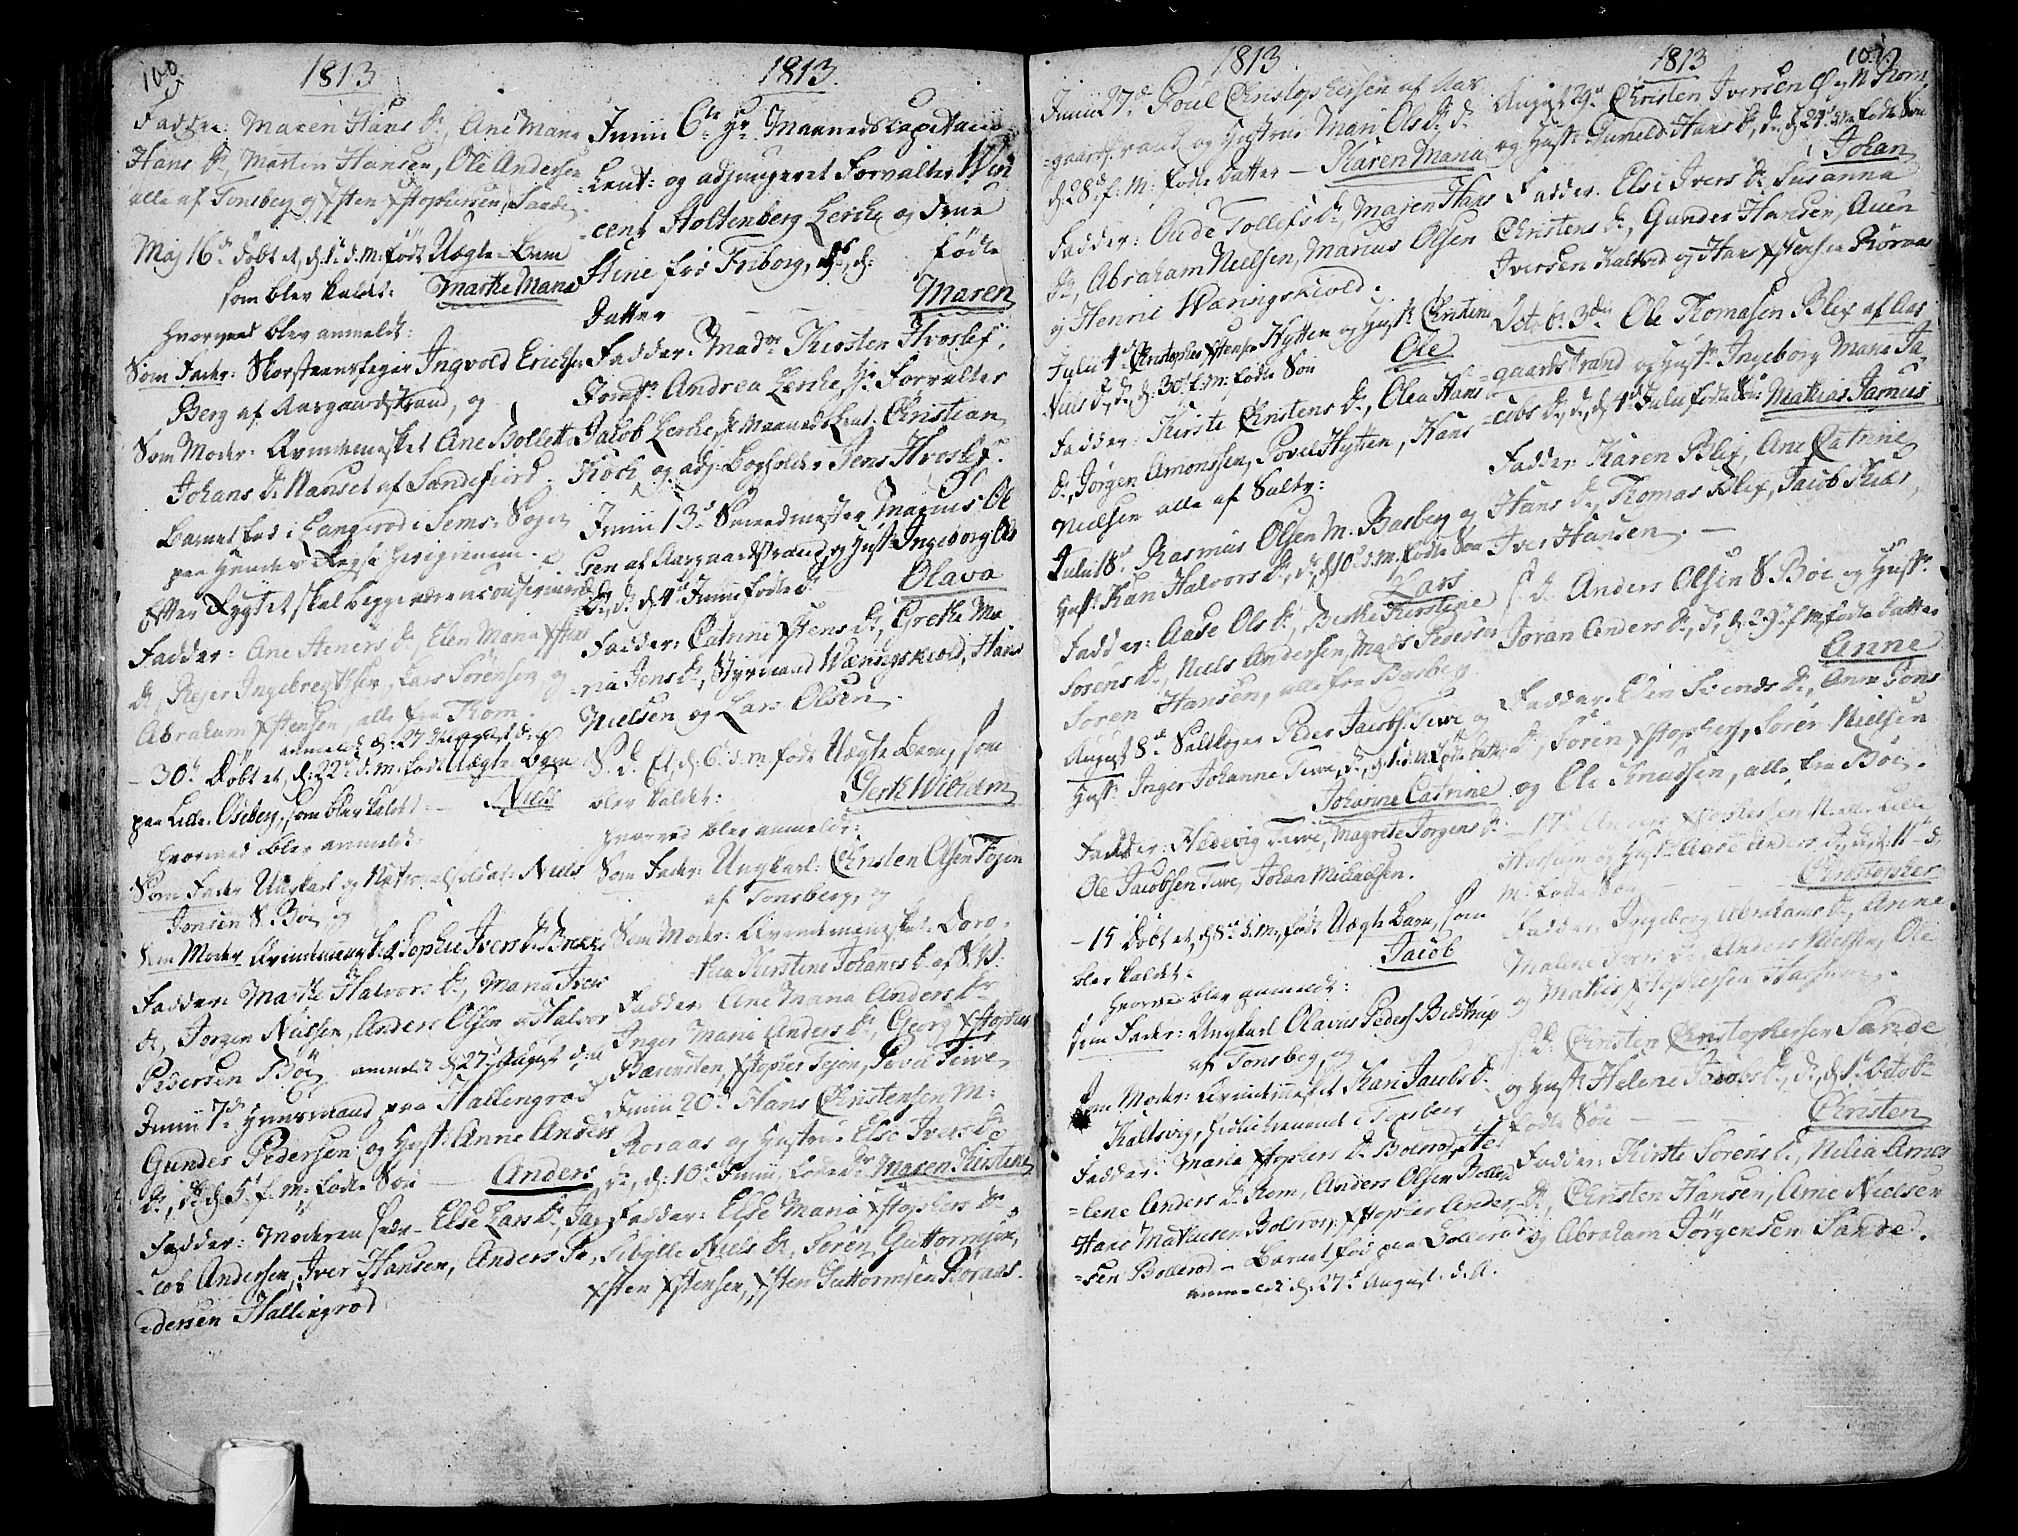 100.
1813
Fadder: Maren Hans Dr, Ane Maria
Hans Dr, Morten Hansen, Ole Andersen
alle af Tonsberg og Xsten Xstophersen, Sande.
Maj 16de Døbt et, d: 1e d. M. født Uægte Barn
som blev kaldet: Marthe Maria
hvorved blev anmeldt:
Som Fader: Skorsteensfeger Ingvold Erichsen
Berg af Aasgaardstrand, og
Som Moder: Qvindemesket Ane Bollette
Johans Dr Nanset af Sandefiord.
Barnet fød i Langerød i Sems Sogn
paa hendes Reyse herigiennem.
Efter Rygtet skal begge være
Fadder: Ane Steners Dr, Elen Maria Xstens
Dr, Rejer Ingebregthsen, Lars Sørensen, og
Abraham Xstensen, alle fra Rom.
anmeldt d: 27 August d: A
- 30te Døbt et, d: 22de d. M. født Uægte Barn
paa Lille Oseberg, som blev kaldet: Niels
hvorved blev anmeldt:
Som Fader Ungkarl og National Soldat: Niels
Jonsen S. Bøe og
Som Moder Qvindemennesket Sophie Ivers Dr Brekke
Fadder: Marthe Halvors Dr, Maria Ivers
Dr, Jørgen Nielsen, Anders Olsen og Halvor
Pedersen Bøe anmeldt d: 27de August d: A
Junii 7de Huusmand paa Hallingrød
Gunder Pedersen og Hust: Anne Anders
Dr, D: d: 5te f. M: fødte Søn Anders
Fadder: Moderen selv - Else Lars Dr, Ja-
-cob Andersen, Iver Hansen, Anders Pe-
-dersen Hallingrød
1813.
Junii 6te Hr: Maanedslapitain
Leut: og adjungeret Forvalter Win-
-cent Stoltenberg Lerche og Frue
Stine fød Friborg, Ds, d: fødte
Datter Maren
Fadder: Madme Kirsten Hvoslef,
Jomfr. Andrea Lerche, Hr Forvalter
Jacob Lerche, Hr Maaneds Leut: Christian
Koch, og adj: Bogholder Jens Hvoslef.
Junii 13de Smeedmester Marius Ol-
sen af Aasgaardstrand og Hust: Ingeborg Ols
Dr, D: d: 4de Junii fødte Dr Olava
Fadder: Catrine Xstens Dr, Grethe Ma-
-ria Jens Dr, Styrmand Wæringskiold, Hans
Nielsen og Lars Olsen
S. d. Et, d: 6te d. M. født Uægte Barn, som
blev kaldet: Gerth Wilhelm
hvorved blev anmeldt:
Som Fader: Ungkarl: Christen Olsen Fogn
af Tonsberg, og
Som Moder: Qvindemennesket: Doro-
thea Kirstine Johans Dr af S.W:
Fadder: Ane Maria Anders Dr
Inger Maria Anders Dr, Georg Xstopher
Bærensten, Xstopher Fejen, Peva Tewe
Junii 20de Hans Christensen M:
Roraas og Hustrue Else Ivers Dr
D:, d: 10de Junii, fødte Dr Maren Kirstine
Fadder: Else Maria Xstophers Dr
Sibylle Niels Dr, Søren Guttormsen,
Xsten Xstensen, Xsten Guttormsen Roraas.
1813.
Junii 27de Poul Christophersen af Aas-
-gaardstrand og Hustrue Mari Ols Dr D.
d: 28de f. M: fødte Datter - Karen Maria
Fadder: Oude Tollefs Dr, Maren Hans
Dr, Abraham Nielsen, Marius Olsen
og Henric Wæringskiold.
Julii 4de Christopher Xstensen Hytten og Hust: Christine
Niels Dr, D: d: 30te f. M: fødte Søn Ole
Fadder: Kirste Christens Dr, Olea Hans
Dr, Jørgen Amonssen, Povel Hytten, Hans
Nielsen alle af Saltv:
Julii 18de Rasmus Olsen M. Basberg og
Hust: Kari Halvors Dr, D: d: 10de d. M. fødte Søn
Lars
Fadder: Aase Ols Dr, Berthe Kirstine
Sørens Dr, Niels Andersen, Mads Pedersen
Søren Hansen, alle fra Basberg
August 8de Saltkoger Peder Jacobs. Tewe og
Hust: Inger Johanne Tewe, D:, d: 1e d. M fødte Datter
Johanne Catrine
Fadder: Hedevig Tewe, Magrete Jorgens Dr
Ole Jacobsen Tewe, Johan Michaelsen.
- 15 Døbt et, d: 8de d. M, født Uægte Barn, som
blev kaldet. Jacob
hvorved blev anmeldt:
Som Fader: Ungkarl Olavus Peders. Bidstrup
af Tonsberg, og
Som Moder: Qvindemesket Kari Jacobs Dr
Kaltsvig, hidtil tienende i Tonsberg
Fadder: Maria Xstophers Dr Bollerød, He-
-lene Anders Dr Rom, Anders Olsen Bollerød
Hans Mathiesen Bollerød, Xstopher Ander-
-sen Bollerød - Barnet fød paa Bollerød
anmeldt d: 27de August. d. A.
1813
101.
August 29de Christen Iversen Ø: N Rom
og Hust: Gunnild Hans Dr, D: d: 21de fødte Søn
Johan
Fadder: Else Ivers Dr, Susanna
Christens Dr, Gunder Hansen, Auen
Iversen Kaltved og Hans Xstensen Roraas
Octobr 3die Ole Thomasen Blix af Aas-
-gaardstrand og Hust: Ingeborg Maria Ja-
-cobs Dr, D:, d: 4de Julii fødte Søn: Mathias Jarnus
Fadder: Karen Blix, Ane Catrine
Hans Dr, Thomas Blix, Jacob Kiær,
Iver Hansen. -
S. d. Anders Olsen S. Bøe og Hust:
Joran Anders Dr, D: d: 29de f. M, fødte Datter
Anne
Fadder. Elen Svends Dr, Anne Jons
Dr, Søren Xstophers, Søren Nielsen
og Ole Knudsen, alle fra Bøe.
- 17de Anders Xstophersen lille
og Hust: Aase Anders Dr, D: d: 11te d.
M. fødte Søn Christopher
Fadder: Ingeborg Abrahams Dr, Anne
Malene Ivers Dr, Anders Nielsen, Ole
og Mathis Xstophersen
S. D. Christen Christophersen Sande
og Hust: Helene Jacobs Dr, D:, d: 1e Octobr
fødte Søn Christen
Fadder: Kirste Sørens Dr, Nilia Arnes
Dr, Christen Hansen, Arne Nielsen
og Abraham Jørgensen Sande.